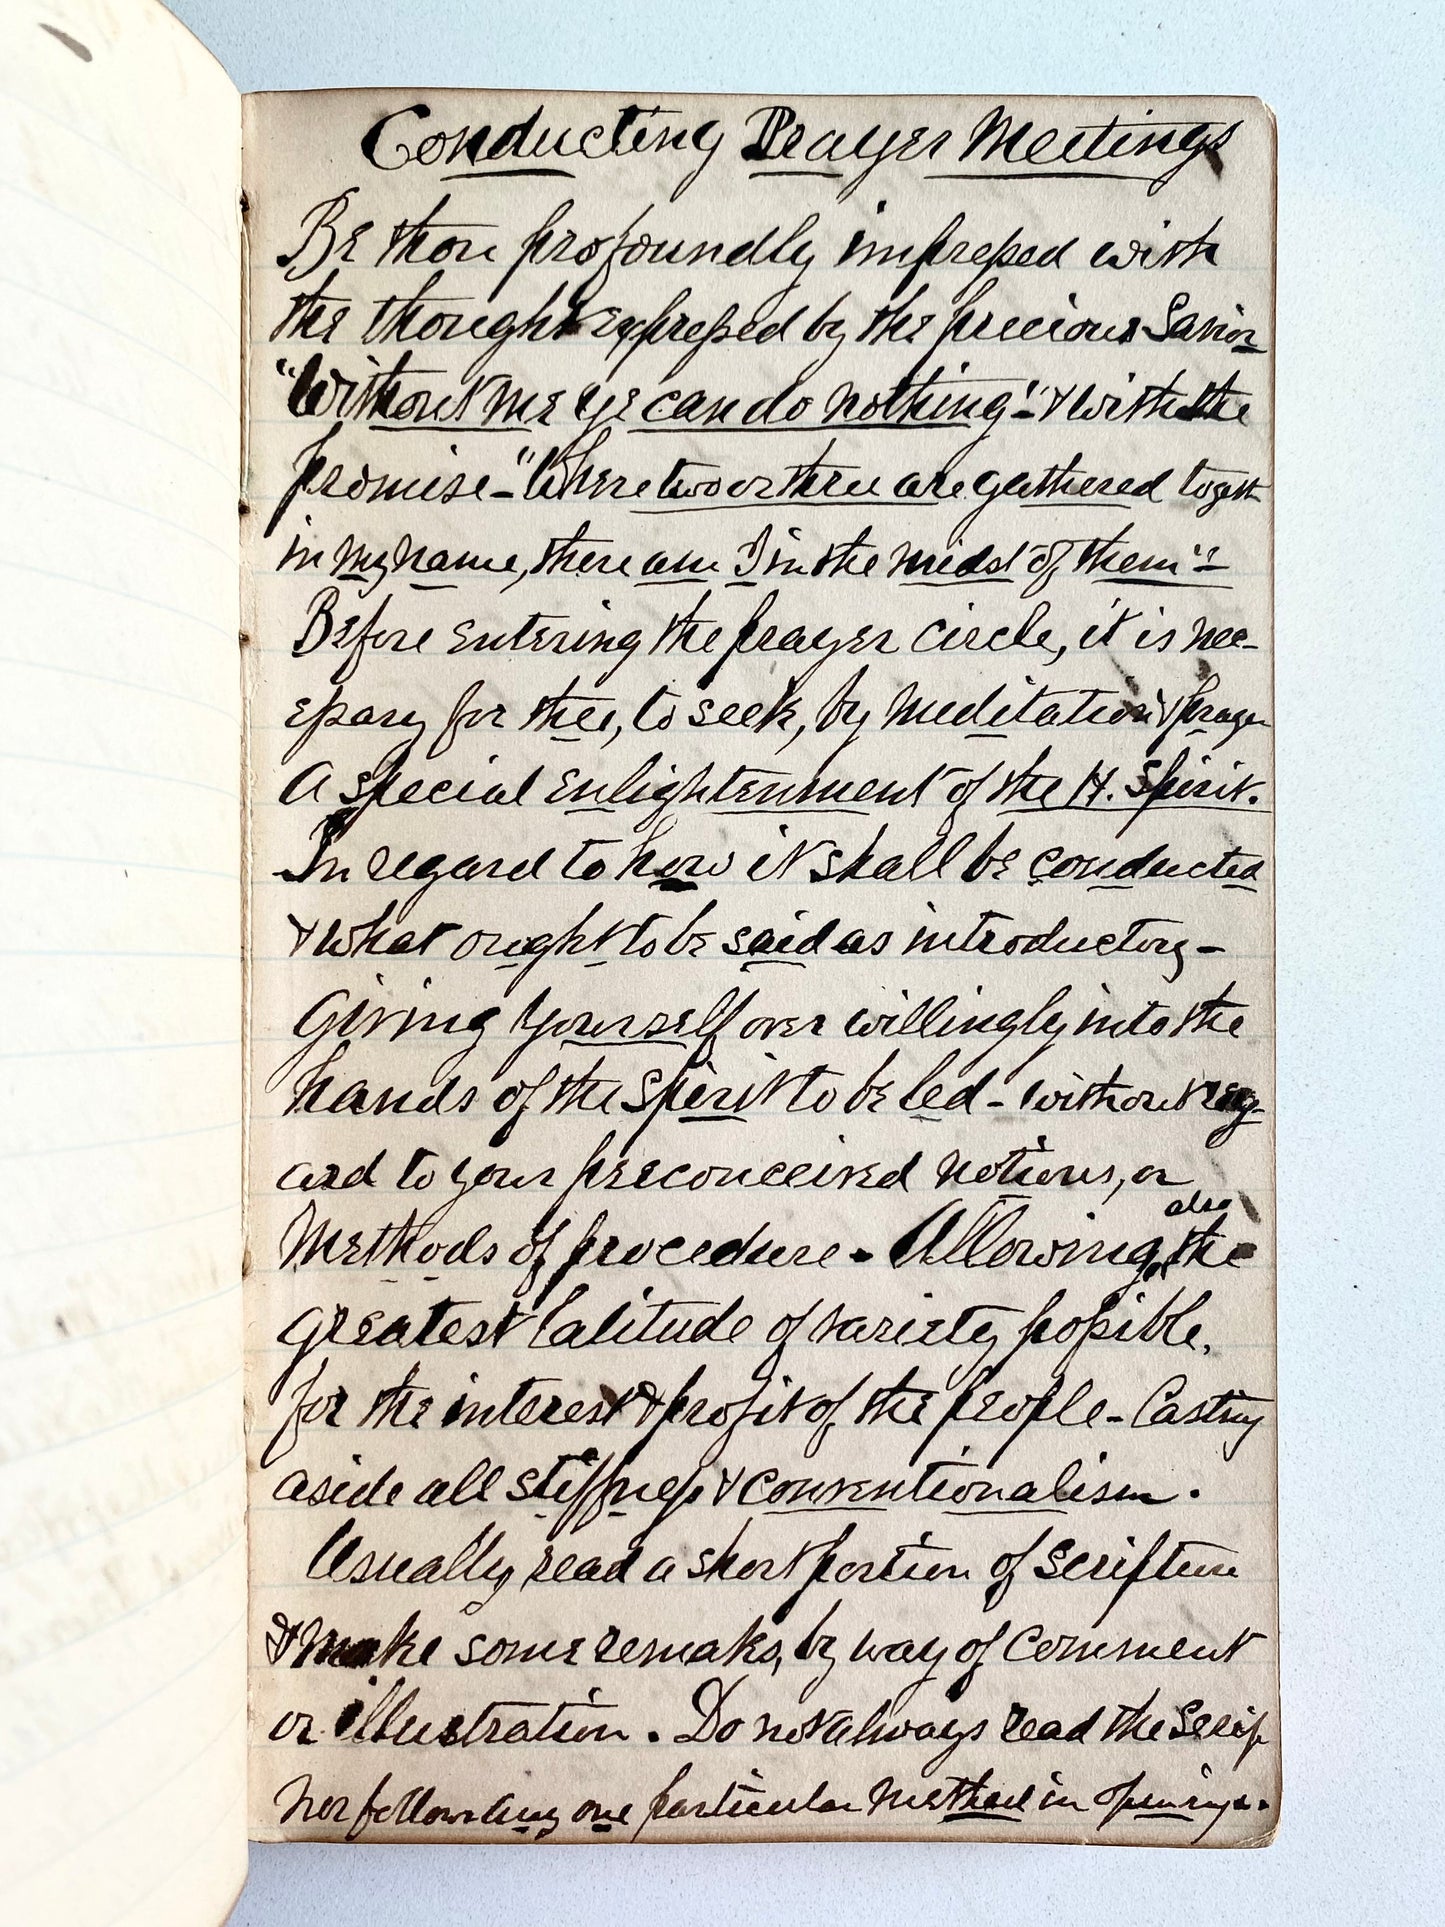 Conducting Prayer Meetings
Be thou profoundly impressed with
the thought expressed by the precious Savior
"Without me ye can do nothing"- & with the
promise - "Where two or three are gathered togeth
in my name, there am I in the midst of them"-
Before entering the prayer circle, it is nec-
essary for thee, to seek, by meditation & prayer
a special enlightenment of the H. Spirit.
In regard to how it shall be conducted
& what ought to be said as introductory -
Giving yourself over willingly into the
hands of the Spirit to be led - without reg-
ard to your preconceived notions, or
methods of procedure - Allowing also the
greatest latitude of variety possible,
for the interest & profit of the people - Casting
aside all stiffness & conventionalism.
Usually read a short portion of Scripture
& make some remaks, by way of comment
or illustration. Do not always read the Scrip
nor follow any one particular method in openings.